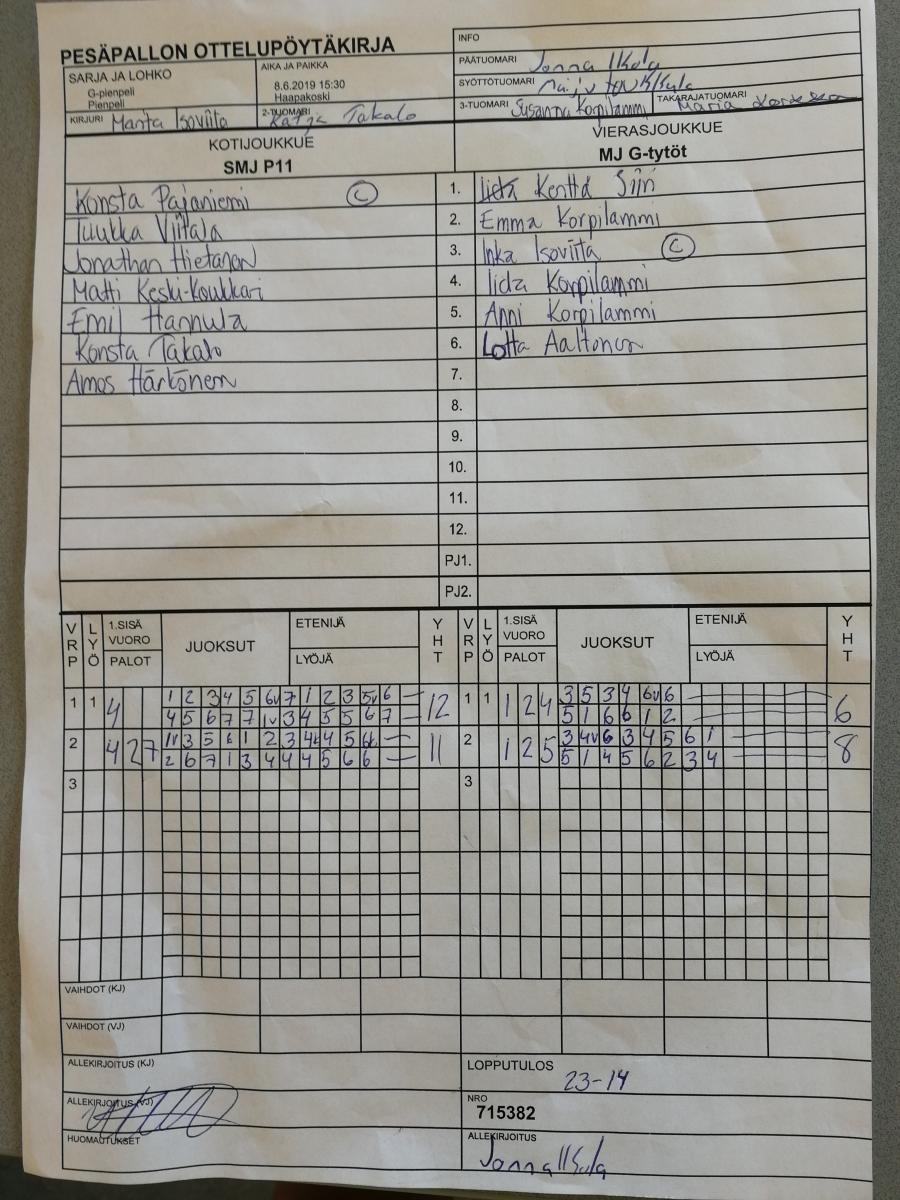 PESÄPALLON OTTELUPÖYTÄKIRJA
INFO
SARJA JA LOHKO
G-pienpeli
Pienpeli
AIKA JA PAIKKA
8.6.2019 15:30
Haapakoski
PÄÄTUOMARI Jonna Ikola
SYÖTTÖTUOMARI
KIRJURI Marita Isoviita
2-TUOMARI Katja Takalo
3-TUOMARI Susanna Korpilammi
TAKARAJATUOMARI Maria
KOTIJOUKKUE
SMJ P11
VIERASJOUKKUE
MJ G-tytöt
Konsta Pajaniemi C 1. Kenttä Siiri
Tuukka Viitala 2. Emma Korpilammi
Jonathan Hietanen 3. Inka Isoviita C
Matti Keski-Koukkari 4. Iida Korpilammi
Emil Hannula 5. Anni Korpilammi
Konsta Takalo 6. Lotta Aaltonen
Amos Härkönen 7.
8.
9.
10.
11.
12.
PJ1.
PJ2.
VRP LYÖ 1.SISÄ VUORO PALOT JUOKSUT ETENIJÄ LYÖJÄ YHT VRP LYÖ 1.SISÄ VUORO PALOT JUOKSUT ETENIJÄ LYÖJÄ YHT
1 1 4 1 2 3 4 5 6v 7 1 2 3 5v 6 12 1 1 1 2 4 3 5 3 4 6v 6 6
4 5 6 7 7 1v 3 4 5 5 6 7 5 1 6 6 1 2
2 4 2 7 1v 3 5 6 1 2 3 4 5 11 2 1 2 5 3 4v 6 3 4 5 6 1 8
2 6 7 1 3 4 4 4 5 6 6 5 1 4 5 6 2 3 4
3 3
VAIHDOT (KJ)
VAIHDOT (VJ)
ALLEKIRJOITUS (KJ)
LOPPUTULOS
23-14
ALLEKIRJOITUS (VJ)
NRO
715382
HUOMAUTUKSET
ALLEKIRJOITUS
Jonna Ikola